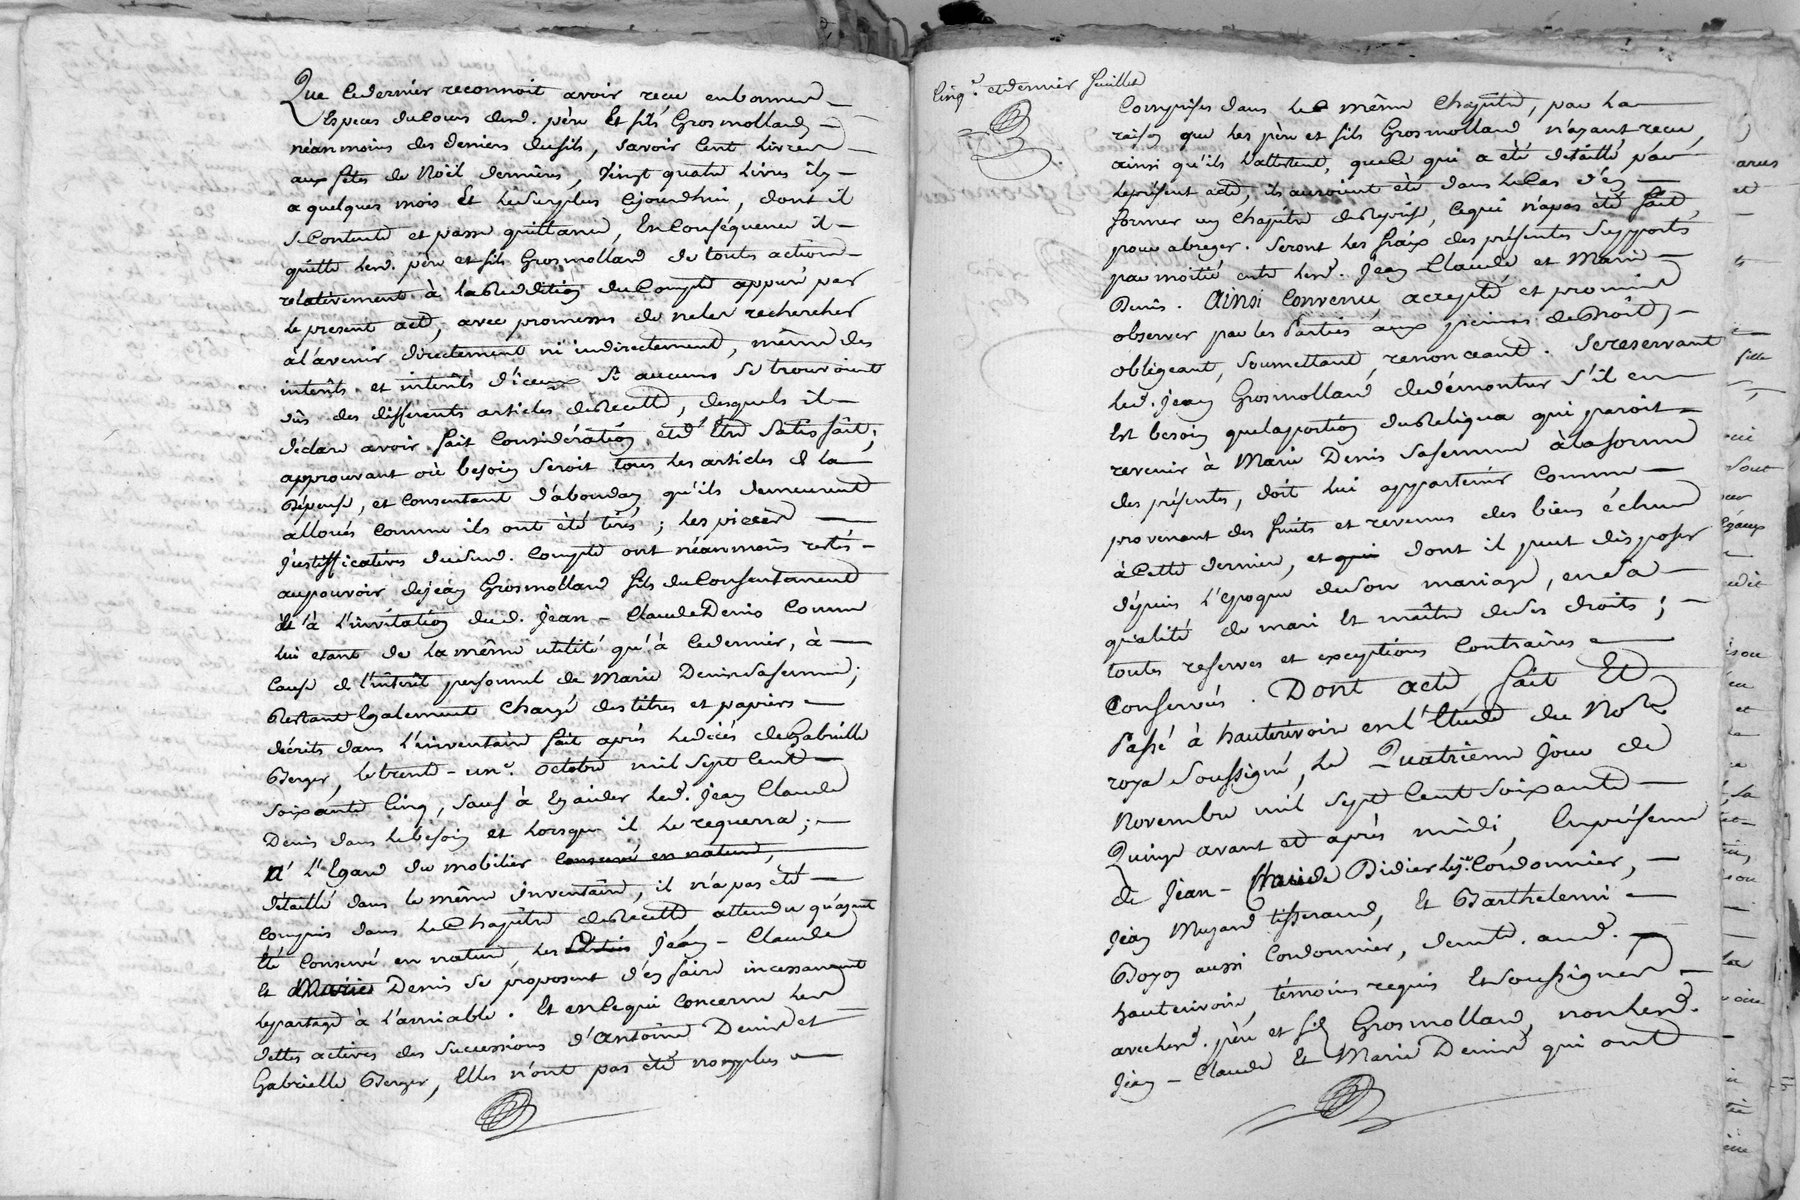 Que ce dernier reconnoit avoir reçu en bonnes
Especes du cours desd. père et fils Grosmolland,
néanmoins des deniers du fils, Savoir Cent Livres
aux fêtes de Noël dernières, Vingt quatre Livres il y
a quelques mois Et le surplus Cejourdhui, dont il
se Contente et passe quittance, En Conséquence il
quitte lesd. père et fils Grosmolland de toute action
relativement à la Reddition du Compte appuré par
le present acte, avec promesses de ne les rechercher
à l'avenir directement ni indirectement, même des
interêts et interêts d'iceux si aucuns se trouvoient
dûs des différents articles de Recette, desquels il
déclare avoir fait Considération et d'Etre Satisfait;
approuvant où besoin seroit tous les articles de la
Dépense, et Consentant d'abondan qu'ils demeurent
alloués comme ils ont été tirés; Les pieces
justifficatives dudud. Compte ont néanmoins restés
au pouvoir de jean Grosmolland fils du Consentement
et à l'invitation dud. Jean-Claude Denis Comme
lui etant de la même utilité qu'à ce dernier, à
Cause de l'interêt personnel de Marie Denis sa femme;
Restant Egalement Chargé des titres et papiers
décrits dans l'inventaire fait après le décès de Gabrielle
Berger, le trent-un.e octobre mil Sept Cent
Soixante Cinq, sauf à En aider led. Jean Claude
Denis dans le besoin et lorsque il le requerra;
A l'Egard du mobilier conservé en nature,
détaillé dans le même inventaire, il n'a pas été
Compris dans le Chapitre de Recette attendu qu'ayant
Eté Conservé en nature, les Jean-Claude
Et Marie Denis se proposent d'en faire incessament
le partage à l'amiable. Et en ce qui concerne les
dettes actives des Successions d'Antoine Denis et
Gabrielle Berger, Elles n'ont pas été non plus
Cinq.e et dernier feuillet
Comprises dans le même Chapitre, par la
raison que les père et fils Grosmolland n'ayant reçu,
ainsi qu'ils l'attestent, que ce qui a été détaillé par
le présent acte, ils auroient été dans le Cas d'en
former un Chapitre de Reprise, ce qui n'a pas été fait
pour abreger. Seront les fraix des présentes Supportés
par moitié entre lesd. Jean Claude et Marie
Denis. Ainsi Convenu accepté et promis
observer par les Parties aux peines de Droit,
obligeant, Soumettant, renonceant. Se reservant
led. Jean Grosmolland de démontrer s'il en
Est besoin que la portion du Reliqua qui paroit
revenir à Marie Denis sa femme à la forme
des présentes, doit lui appartenir Comme
provenant des fruits et revenus des biens échus
à Cette dernière, et qui dont il peut disposer
depuis l'Epoque de son mariage, en sa
qualité de mari Et maître de ses droits;
toutes reserves et exceptions Contraires
Conservées. Dont acte, fait Et
Passé à hauterivoire en l'Etude du Not.re
royal Soussigné, Le Quatrieme jour de
Novembre mil Sept Cent Soixante
Quinze avant et après midi, En présence
de Jean-Claude Didier Cordonnier,
Jean Muzard tisserand, Et Barthelemi
Boyon aussi Cordonnier, demt. aud.
hauterivoire, témoins requis Et Soussignés
avec lesd. père et fils Grosmolland, non lesd.
Jean-Claude Et Marie Denis qui ont